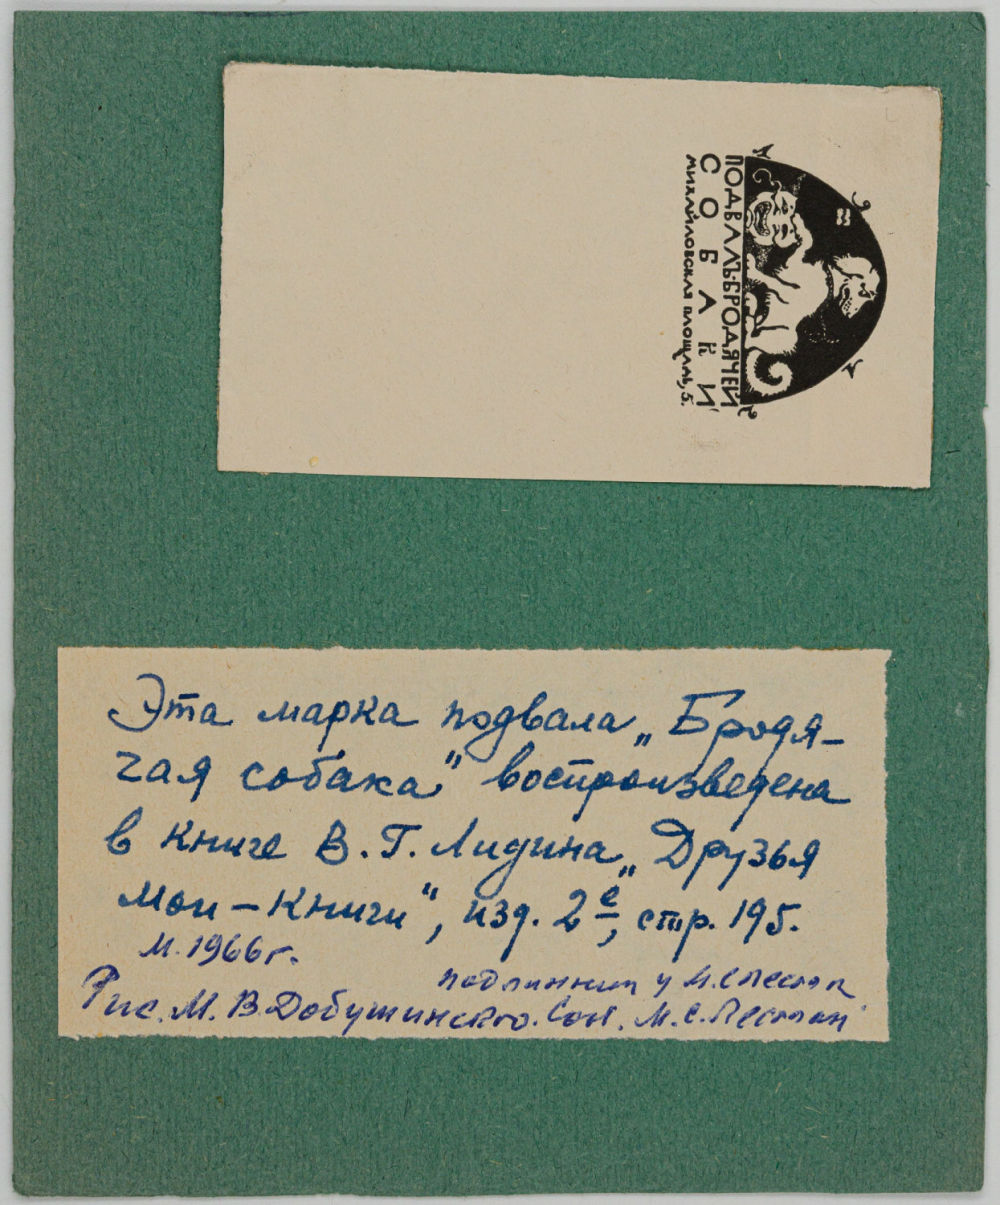 ПОДВАЛЪ·БРОДЯЧЕЙ
СОБАКИ
МИХАЙЛОВСКАЯ ПЛОЩАДЬ, 5.
Эта марка подвала „Бродя-
чая собака" воспроизведена
в книге В. Г. Лидина „Друзья
мои – книги", изд. 2е, стр. 195.
М. 1966 г.
подлинник у М.С. Лесман
Рис. М. В. Добужинского. Соб. М. С. Лесман